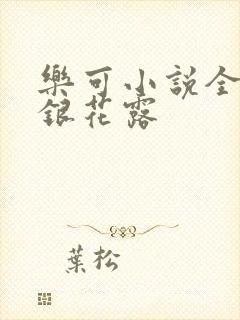 樂可小說全
銀花露
葉松